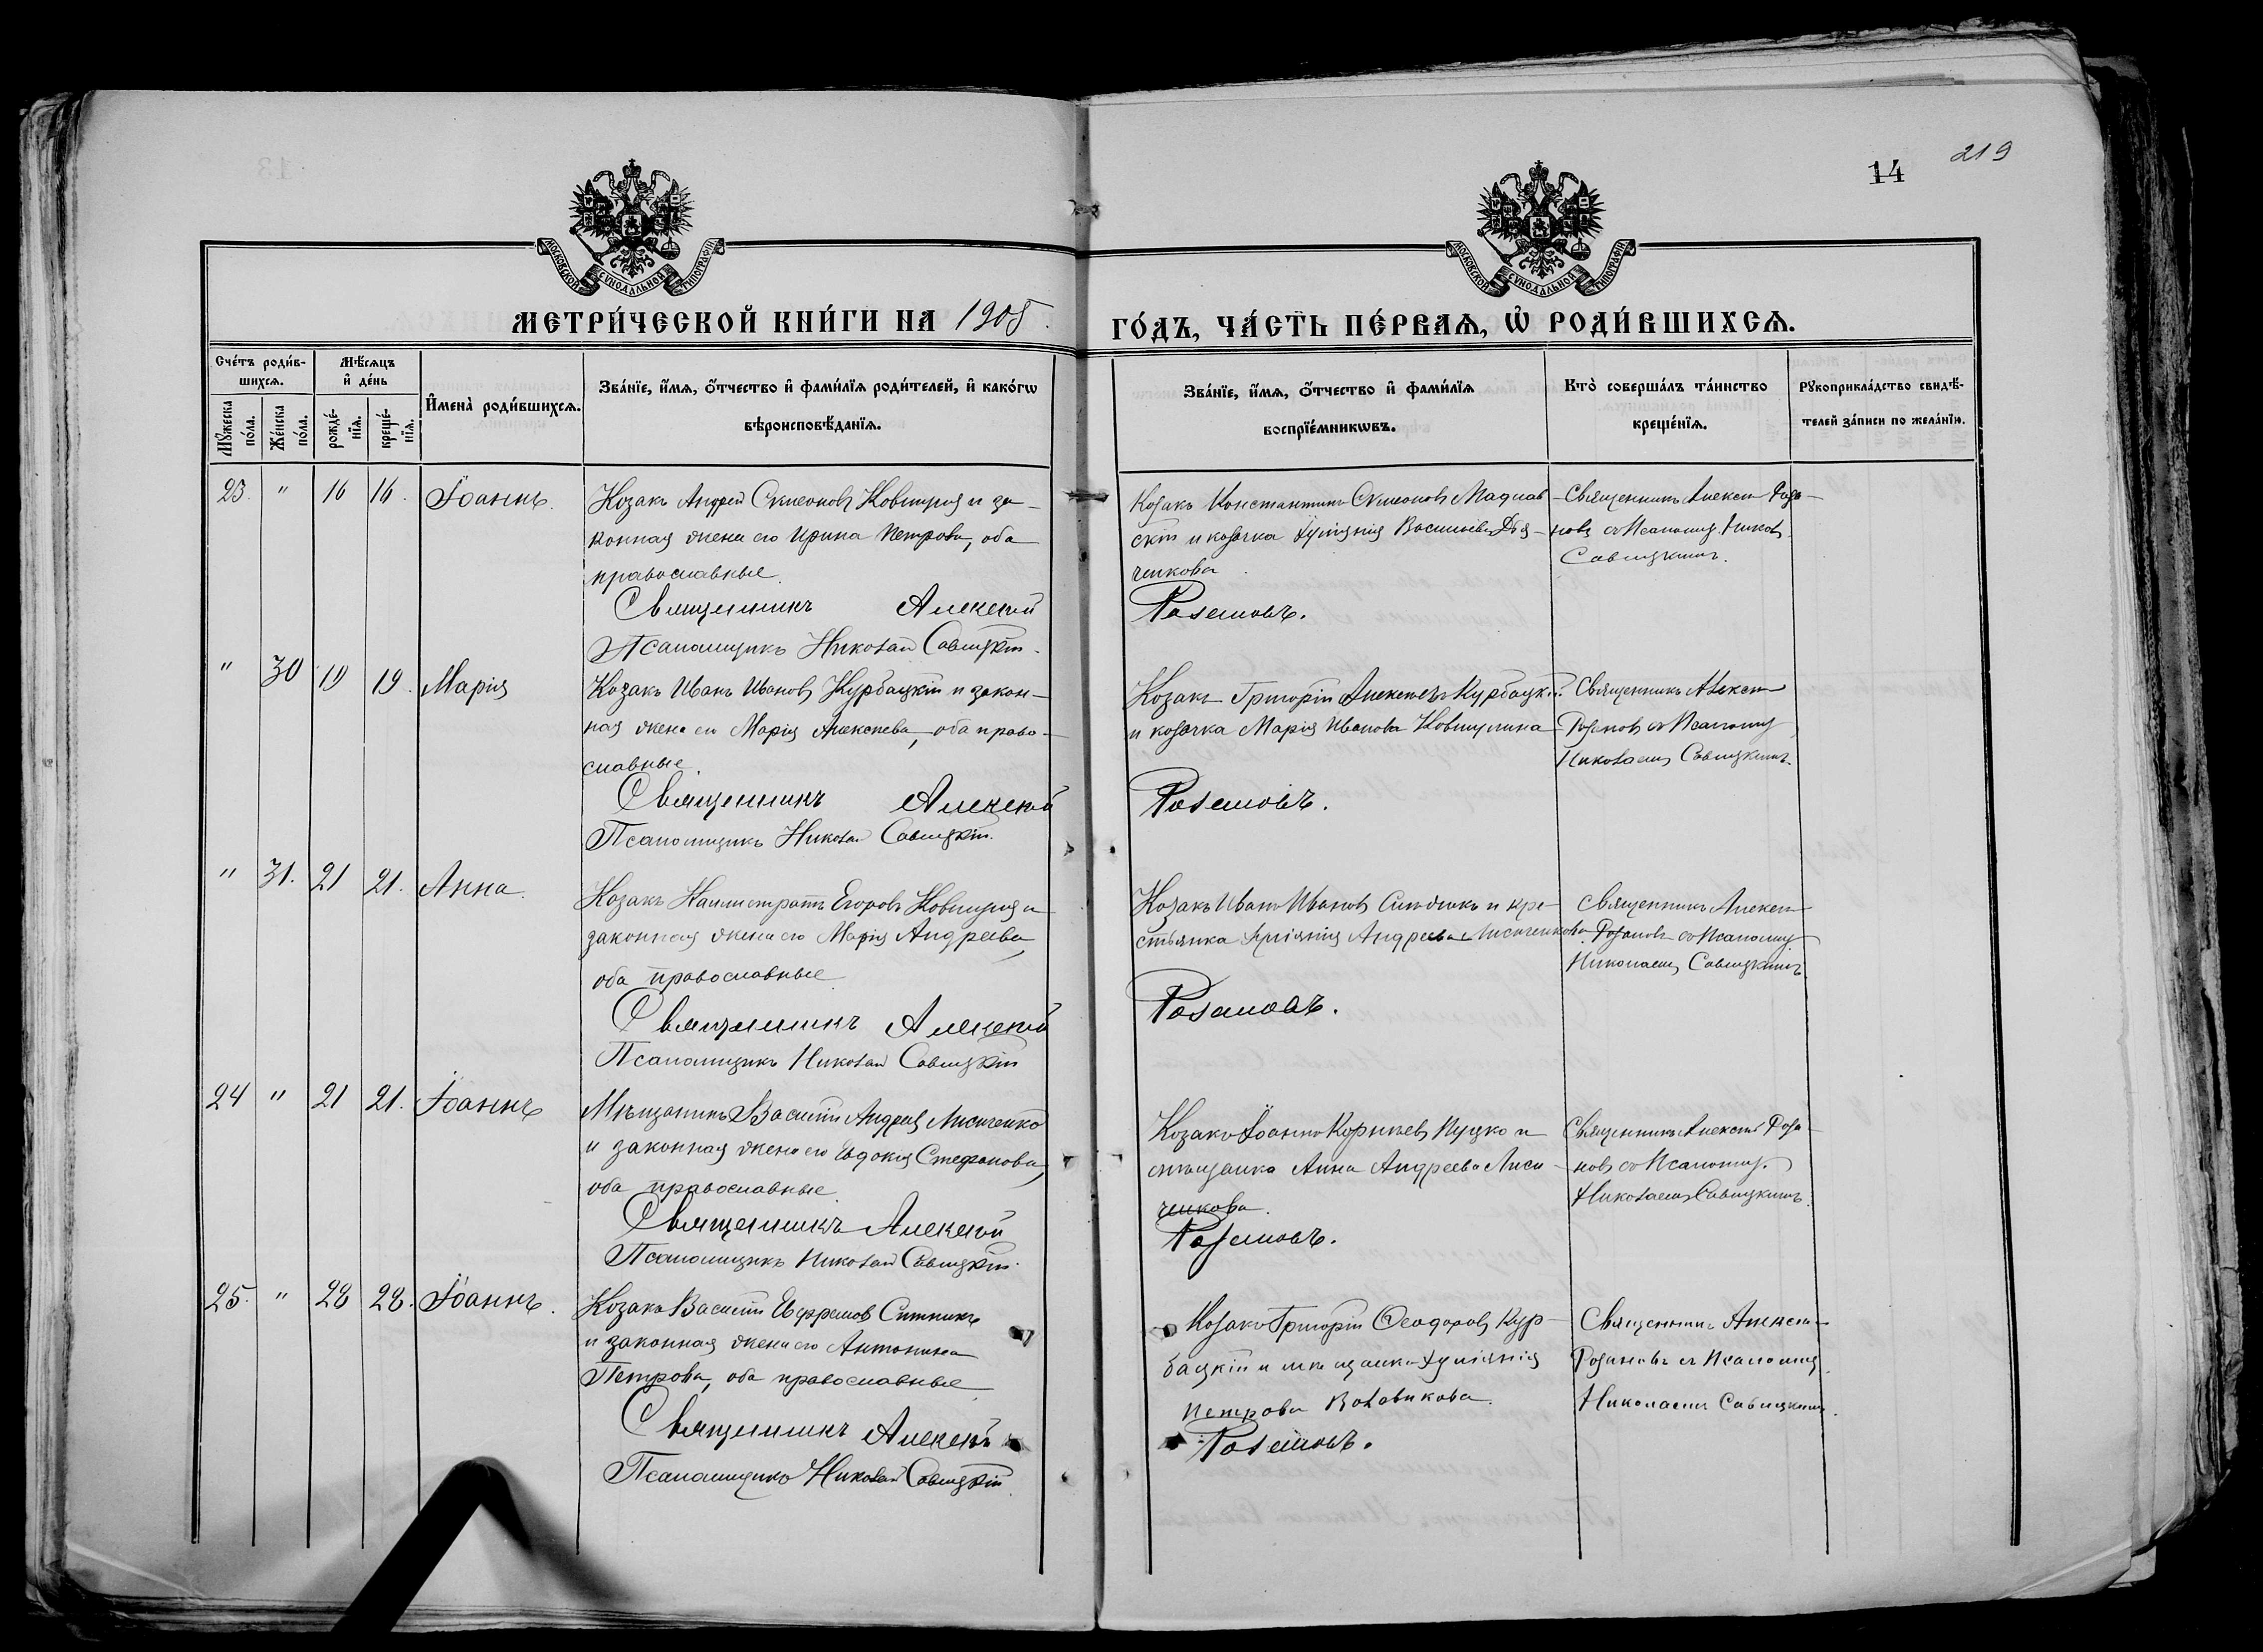 219
14
МОСКОВСКОЙ СѴНОДАЛЬНОЙ ТИПОГРАФІИ
МОСКОВСКОЙ СѴНОДАЛЬНОЙ ТИПОГРАФІИ
МЕТРИ́ЧЕСКОЙ КНИ́ГИ НА 1905
ГО́ДЪ, ЧА́СТЬ ПЕ́РВАѦ, Ѽ РОДИ́ВШИХСѦ.
Сче́тъ роди́в-
шихсѧ.
Мꙋжеска по́ла.
Же́нска по́ла.
Мѣ́сѧцъ
и҆ де́нь
рожде́-
нїѧ.
креще́-
нїѧ.
И҆мена̀ роди́вшихсѧ.
Зва́нїе, и҆́мѧ, ѻ҆́тчество и҆ фами́лїѧ роди́телей, и҆ како́гѡ
вѣроисповѣ́данїѧ.
Зва́нїе, и҆́мѧ, ѻ҆́тчество и҆ фами́лїѧ
воспрїе́мникѡвъ.
Кто̀ соверша́лъ та́инство
креще́нїѧ.
Рꙋкоприкла́дство свидѣ́-
телей за́писи по жела́нїю.
23. " 16 16. Іоаннъ.
Козакъ Андрей Симеоновъ Ковшуля и за-
конная жена его Ирина Петрова, оба
православные.
Священникъ Алексей
Псаломщикъ Николай Савицкій.
Козакъ Константинъ Симеоновъ
скій и козачка Іуліанія Васильева
ченкова
Розановъ.
Священникъ Алексій Роза-
новъ съ Псаломщ. Никол.
Савицкимъ.
" 30 19 19. Марія
Козакъ Иванъ Ивановъ Курбацкій и закон-
ная жена его Марія Алексѣева, оба право-
славные.
Священникъ Алексей
Псаломщикъ Николай Савицкій.
Козакъ Григорій Алексѣевъ Курбацкій
и козачка Марія Иванова Ковшулина
Розановъ.
Священникъ Алексій
Розановъ съ Псаломщ.
Николаемъ Савицкимъ.
" 31. 21 21. Анна.
Козакъ Каллистратъ Егоровъ Ковшуля и
законная жена его Марія Андреева,
оба православные
Священникъ Алексей
Псаломщикъ Николай Савицкій
Козакъ Иванъ Ивановъ и кре-
стьянка Іуліанія Андреева Лисиченкова
Розановъ.
Священникъ Алексій
Розановъ съ Псаломщ.
Николаемъ Савицкимъ
24 " 21 21. Іоаннъ
Мѣщанинъ Василій Андреевъ Лисиченко
и законная жена его Евдокія Стефанова,
оба православные.
Священникъ Алексей
Псаломщикъ Николай Савицкій.
Козакъ Іоаннъ Корнѣевъ Пуцко и
мѣщанка Анна Андреева Лиси-
ченкова.
Розановъ.
Священникъ Алексій Роза-
новъ съ Псаломщ.
Николаемъ Савицкимъ.
25. " 28 28. Іоаннъ.
Козакъ Василій Евфремовъ Ситникъ
и законная жена его Антонина
Петрова, оба православные
Священникъ Алексей
Псаломщикъ Николай Савицкій.
Козакъ Григорій Феодоровъ Кур-
бацкій и мѣщанка Іуліанія
Петрова Воловикова.
Розановъ.
Священникъ Алексій
Розановъ съ Псаломщ.
Николаемъ Савицкимъ.